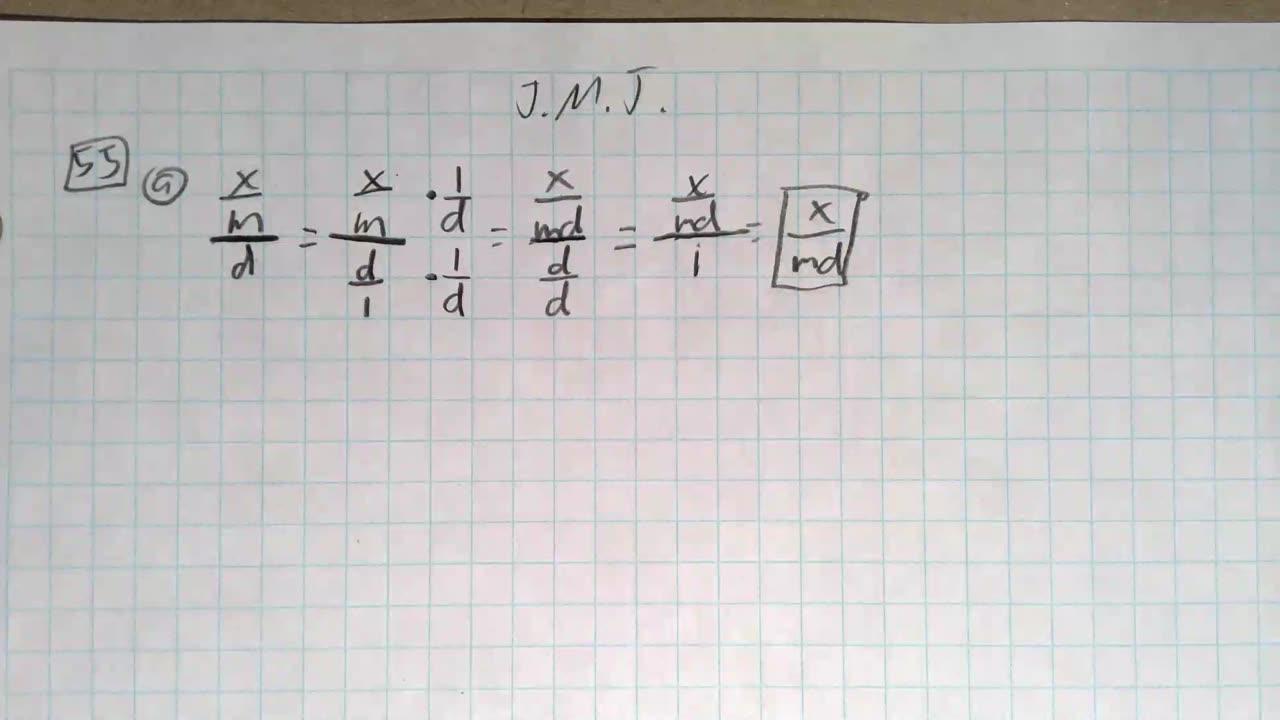 J.M.J.
55 a (x/m)/d = (x/m · 1/d)/(d/1 · 1/d) = (x/md)/(d/d) = (x/md)/1 = x/md